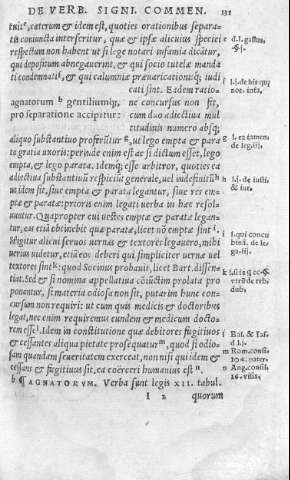 DE VERB. SIGNI. COMMEN. 131
tinisᵉ, caterum & idem est, quoties orationibus separa-
tis coniuncta interseritur, quæ & ipsæ alicuius speciei
respectum non habent ut si lege notari infamia dicatur,
qui depositum abnegauerit, & qui socio tutelæ manda
ti condemnatiᶠ, & qui calumniæ præuaricationisᵍ iudi
cati sint. Eadem ratio-
agnatorum ʰ gentiliumq;, ne concursus non sit,
pro separatione accipitur: cum duo adiectiua mul
titudinis numero absq;
aliquo substantiuo proferūtur, ut lego empta & para
ta gratia uxoris: perinde enim est ac si dictum esset, lego
empta, & lego parata. Idemq; esse arbitror, quoties ea
adiectiua substantiuū respiciunt generale, uel indefinitū
ut idem sit, siue emptæ, & paratæ legantur, siue res em-
ptæ & paratæ: prioris enim legati uerba in hæc resol-
uuntur. Quapropter cui uestes emptæ & paratæ legan-
tur, eas etiā obtinebit quæ paratæ, licet nō emptæ sint
Idigitur alicui seruos uernas & textores legauero, mihi
uerius uidetur, etiā eos deberi qui simpliciter uernæ uel
textores sint: quod Socinus probauit, licet Bart. dissen-
tiat. Sed & si nomina appellatiua cōiūctim prolata pro
ponantur, si materia odiosa non sit, putarim hunc con-
cursum non requirit: ut cum quis medicis & doctoribus
legat, nec enim requiremus eundem & medicum docto-
rem esse. Idem in constitutione quæ debitores fugitiuos
& cessantes aliqua pietate prosequatur, quod si odio-
sam quandam seueritatem exerceat, non nisi qui idem &
cessans & fugitiuus sit, ea coërceri humanius est
b ¶ AGNATORVM. Verba sunt legis XII. tabul.
I 2 quorum